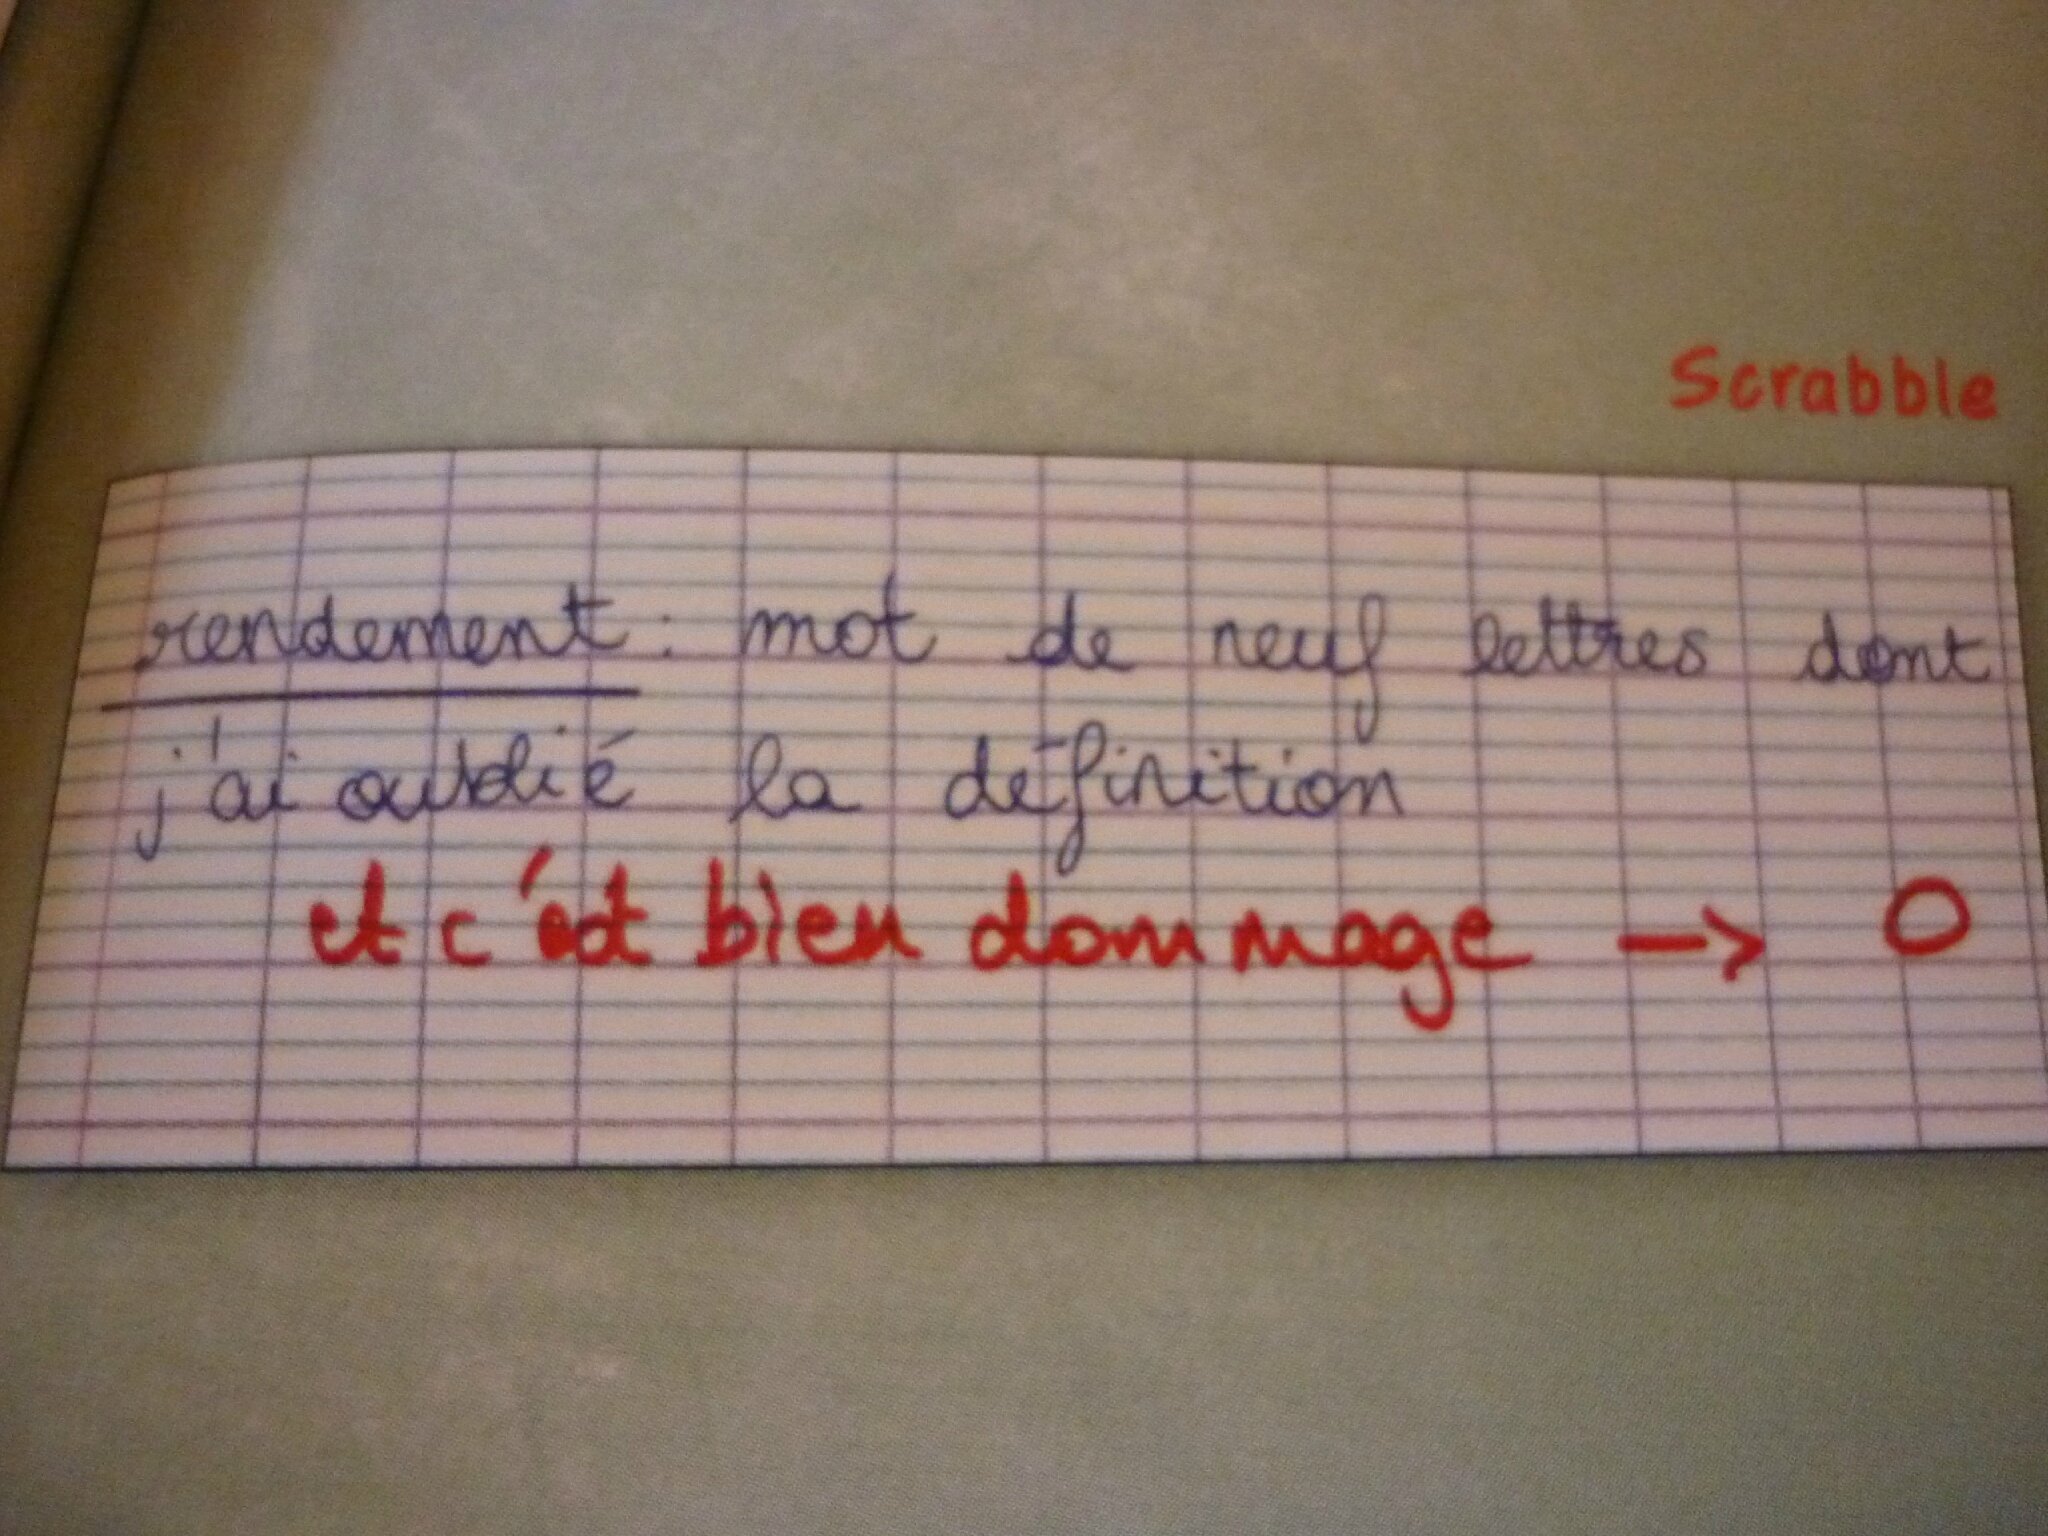 Scrabble
rendement : mot de neuf lettres dont
j'ai oublié la définition
et c'est bien dommage → 0